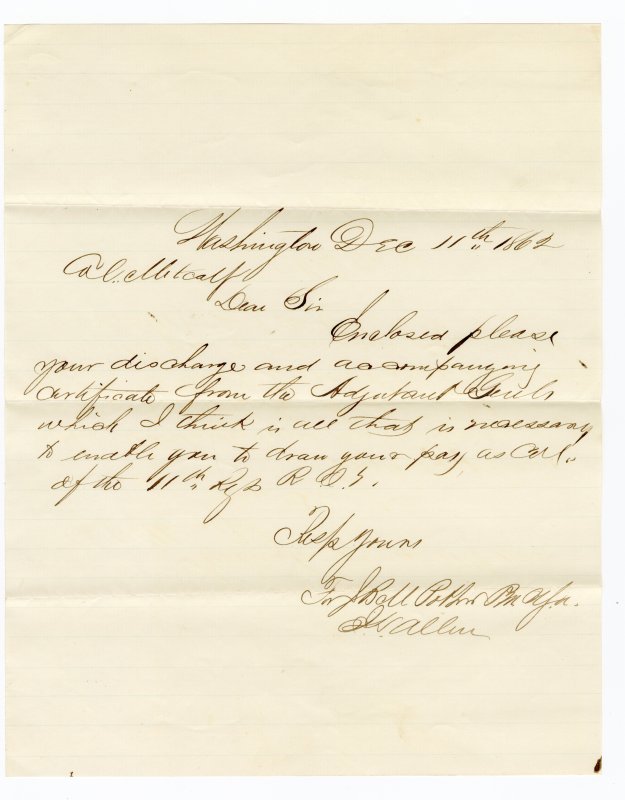 Washington Dec 11th 1862
Col. Metcalf
Dear Sir
Enclosed please
your discharge and accompanying
certificate from the Adjutant Genls
which I think is all that is necessary
to enable you to draw your pay as Col.
of the 11th Regt R.I.V.
Resp Yours
For J B M Potter PM U.S.A.
Allen